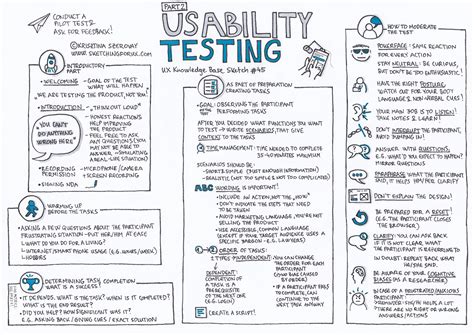 CONDUCT A
PILOT TEST &
ASK FOR FEEDBACK!
© KRISZTINA SZEROVAY
WWW.SKETCHINGFORUX.COM
PART 2
USABILITY
TESTING
UX KNOWLEDGE BASE SKETCH #45
INTRODUCTORY
PART
• WELCOMING – GOAL OF THE TEST
WHAT WILL HAPPEN
• WE ARE TESTING THE PRODUCT, NOT YOU!
• INTRODUCTION – "THINK OUT LOUD"
"YOU CAN'T
DO ANYTHING
WRONG HERE"
– HONEST REACTIONS
HELP IMPROVING
THE PRODUCT
– FEEL FREE TO ASK
ANY QUESTIONS (YOU
MAY NOT BE ABLE TO
ANSWER – SIMULATING
A REAL-LIFE SITUATION)
• RECORDING
PERMISSION
– MICROPHONE/CAMERA
– SCREEN RECORDING
• SIGNING NDA
WARMING UP
BEFORE THE TASKS
• ASKING A FEW QUESTIONS ABOUT THE PARTICIPANT
WHAT DO YOU DO FOR A LIVING?
• INTERNET/SMART PHONE USAGE (E.G. HOURS/WEEK)
• HOBBIES
DETERMINING TASK COMPLETION
WHAT IS A SUCCESS?
• IT DEPENDS. WHAT IS THE TASK? WHEN IS IT COMPLETED?
WHAT IS THE END RESULT?
• DID YOU HELP? HOW SIGNIFICANT WAS IT?
E.G. ASKING BACK / GIVING CUES / EXACT SOLUTION
AS PART OF PREPARATION
CREATING TASKS
• GOAL: OBSERVING THE PARTICIPANT
PERFORMING TASKS
AFTER YOU DECIDED WHAT FUNCTIONS YOU WANT
TO TEST → WRITE SCENARIOS, THAT GIVE
CONTEXT TO THE TASKS
TIME MANAGEMENT – TIME NEEDED TO COMPLETE
SCENARIOS SHOULD BE:
– SHORT & SIMPLE (BUT ENOUGH INFORMATION)
– REALISTIC (NOT TOO SIMPLE / NOT TOO COMPLICATED)
ABC WORDING IS IMPORTANT!
– INCLUDE AN ACTION, NOT THE "HOW"
– DON'T INDICATE THE STEPS THAT NEED
TO BE TAKEN
– AVOID MARKETING LANGUAGE, YOU'RE NOT
SELLING THE PRODUCT
– USE EVERYDAY, COMMON LANGUAGE (EXCEPT
IF YOUR TARGET AUDIENCE USES A
SPECIFIC JARGON – E.G. LAWYERS)
ORDER OF TASKS:
2 TYPES
INDEPENDENT: YOU CAN CHANGE
THE ORDER FOR
EACH PARTICIPANT
DEPENDENT:
COMPLETION
OF A TASK IS A
PREREQUISITE
OF THE NEXT ONE
CREATE A SCRIPT!
HOW TO MODERATE
THE TEST
POKERFACE – SAME REACTION
FOR EVERY ACTION
STAY NEUTRAL – BE CURIOUS,
BUT DON'T BE TOO ENTHUSIASTIC!
HAVE THE RIGHT POSTURE
(WATCH OUT FOR YOUR BODY
LANGUAGE & NON-VERBAL CUES)
YOUR MAIN JOB IS TO LISTEN!
TAKE NOTES & LEARN!
DON'T INTERRUPT THE PARTICIPANT,
AVOID JUMPING IN!
ANSWER WITH QUESTIONS,
E.G. WHAT DO YOU EXPECT TO HAPPEN?
MIRROR SENTENCES
PARAPHRASE WHAT THE PARTICIPANT
SAID, IT HELPS HIM/HER CLARIFY
DON'T EXPLAIN THE DESIGN!
BE PREPARED FOR A RESET
(E.G. THE PARTICIPANT CLOSES
THE BROWSER)
CLARIFY: YOU CAN ASK BACK
IF IT IS NOT CLEAR, WHAT
THE PARTICIPANT IS REFERRING TO
NO DOUBT: REPEAT BACK WHAT
HE/SHE SAID
BE AWARE OF YOUR COGNITIVE
BIASES